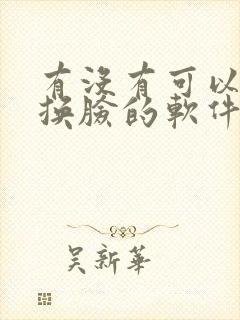 有没有可以
换臉的軟件
吴新華